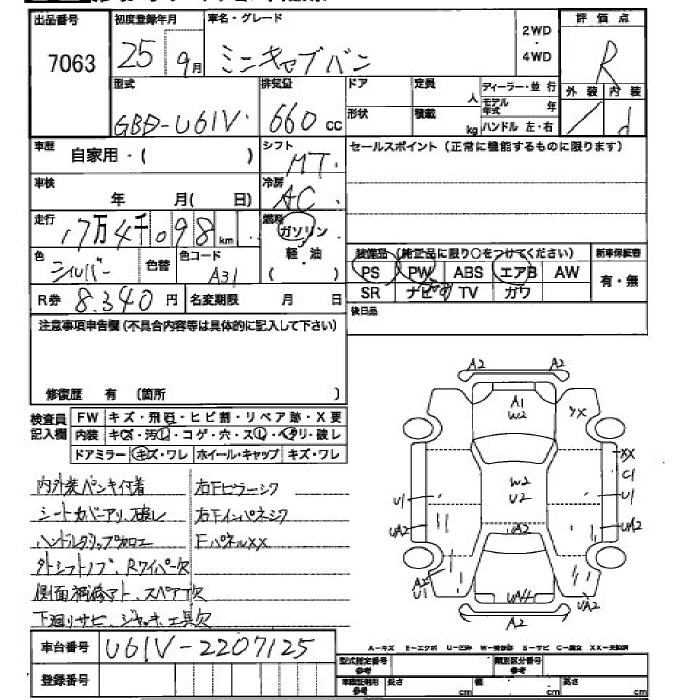 出品番号 初度登録年月 車名・グレード 2WD ・ 4WD 評価点
7063 25年 9月 ミニキャブバン R
型式 排気量 ドア 定員 人 ディーラー・並行 外装 内装
GBD-U61V 660cc 形状 積載 kg モデル年式 年 ハンドル 左・右 / d
車歴 自家用・( ) シフト MT セールスポイント(正常に機能するものに限ります)
車検 年 月(日) 冷房 AC
走行 17万4千098km 燃料 ガソリン・軽油
色 シルバー 色替 色コード A31 装備品(純正品に限り○をつけてください) 新車保証書
PS PW ABS エアB AW 有・無
R券 8.340円 名変期限 月 日 SR ナビ TV ガワ
注意事項申告欄(不具合内容等は具体的に記入して下さい) 後日品
修復歴 有 (箇所 )
検査員記入欄 FW キズ・飛石・ヒビ割・リペア跡・X要
内装 キズ・汚レ・コゲ・穴・スレ・ヘタリ・破レ
ドアミラー キズ・ワレ ホイール・キャップ キズ・ワレ
内外装ペンキ付着 右Fピラーシワ
シートカバーアリ、破レ 右Fインパネシワ
ハンドルグリップ加工 FパネルXX
外シフトノブ、Rワイパー欠
側面補修アト、スペアT欠
下廻リサビ、ジャッキ、工具欠
A2 A2
A1
W2 YX
XX
C1
U1 W2 U2 U1
UA2 A2 UA2
A2
U1 UA4 UA2
A2
A-キズ E-エクボ U-凹み W-補修跡 S-サビ C-腐食 XX-交換済
車台番号 U61V-2207125
登録番号 型式指定番号 参考 類別区分番号 参考
車検証期用 参考 長さ cm 幅 cm 高さ cm